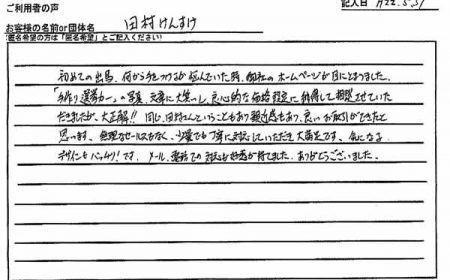 ご利用者の声
記入日 H22.5.31
お客様の名前or団体名 田村けんすけ
(匿名希望の方は「匿名希望」とご記入ください)
初めての出馬、何から手をつけるか悩んでいた時、御社のホームページが目にとまりました。
「手作り選挙カー」の写真、文章に大笑いし、良心的な価格設定に納得して相談させていた
だきましたが、大正解!! 同じ田村さんということもあり親近感もあり、良いお取引ができたと
思います。無理なセールスもなく、少量でも丁寧に対応していただき大満足です。気になる
デザインもバッチリ!です。メール、電話での対応も好感が持てました。ありがとうございました。